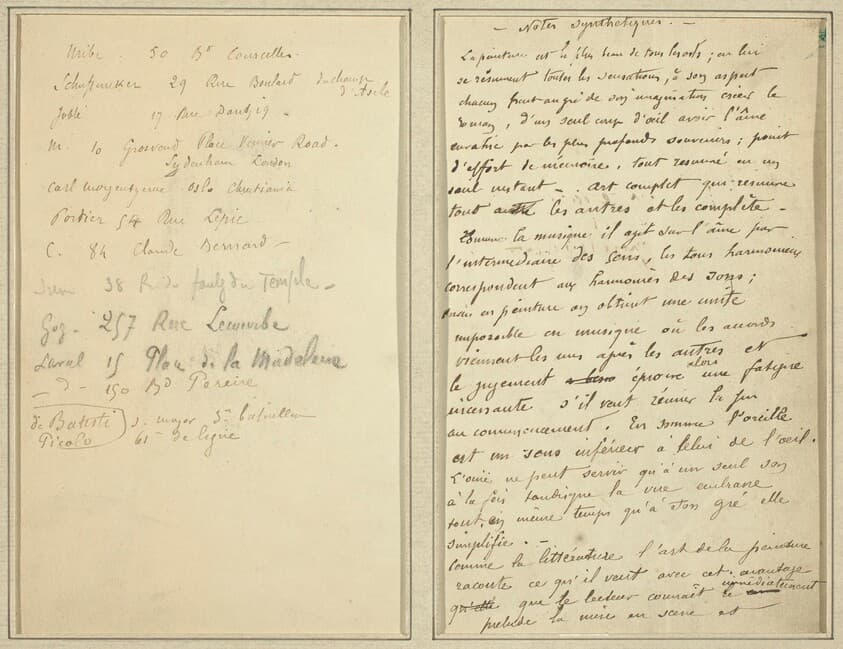 Uribe. 50 Bd Courcelles.
Schuffenecker 29 Rue Boulard
d'Asile
Jobbé 17 Rue Dantzig -
M. 10 Grosvend Place Vernier Road.
Sydenham London
Carl Oslo Christiania
Portier 54 Rue Lepic
C. 84 Claude Bernard -
38 R. du faubg du Temple -
Gog - 257 Rue Lecourbe
Laval 15 Place de la Madeleine
- d - 150 Bd Pereire
de Batisti s. major 3me bataillon
Picolo 61 de ligne
- Notes synthetiques. -
La peinture est le plus beau de tous les arts ; en lui
se résument toutes les sensations, à son aspect
chacun peut au gré de son imagination créer le
roman, d'un seul coup d'œil avoir l'âme
envahie par les plus profonds souvenirs ; point
d'effort de mémoire, tout resumé en un
seul instant -. Art complet qui resume
tout les autres et les complète -
Comme la musique il agit sur l'âme par
l'intermediaire des sens, les tons harmonieux
correspondent aux harmonies des sons ;
mais en peinture on obtient une unité
impossible en musique où les accords
viennent les uns après les autres et
le jugement éprouve alors une fatigue
incessante s'il veut réunir la fin
au commencement. En somme l'oreille
est un sens inférieur à celui de l'œil.
L'ouïe ne peut servir qu'à un seul son
à la fois tandisque la vue embrasse
tout, en même temps qu'à son gré elle
simplifie. -
Comme la littérature l'art de la peinture
raconte ce qu'il veut avec cet avantage
que le lecteur connaît immédiatement le
prelude la mise en scène et